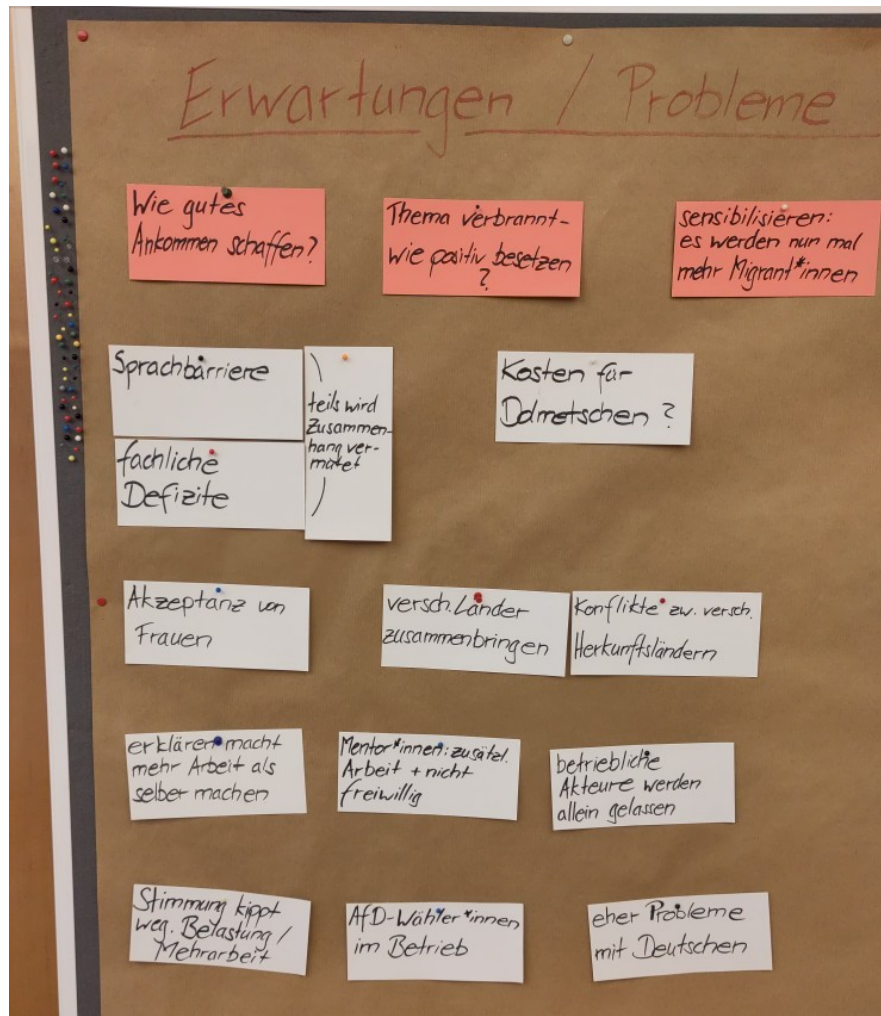 Erwartungen / Probleme
Wie gutes
Ankommen schaffen?
Thema verbrannt-
wie positiv besetzen
?
sensibilisieren:
es werden nun mal
mehr Migrant*innen
Sprachbarriere
fachliche
Defizite
teils wird
Zusammen-
hang ver-
mutet
Kosten für
Dolmetschen ?
Akzeptanz von
Frauen
versch. Länder
zusammenbringen
Konflikte zw. versch.
Herkunftsländern
erklären macht
mehr Arbeit als
selber machen
Mentor*innen: zusätzl.
Arbeit + nicht
freiwillig
betriebliche
Akteure werden
allein gelassen
Stimmung kippt
weg. Belastung /
Mehrarbeit
AfD-Wähler*innen
im Betrieb
eher Probleme
mit Deutschen